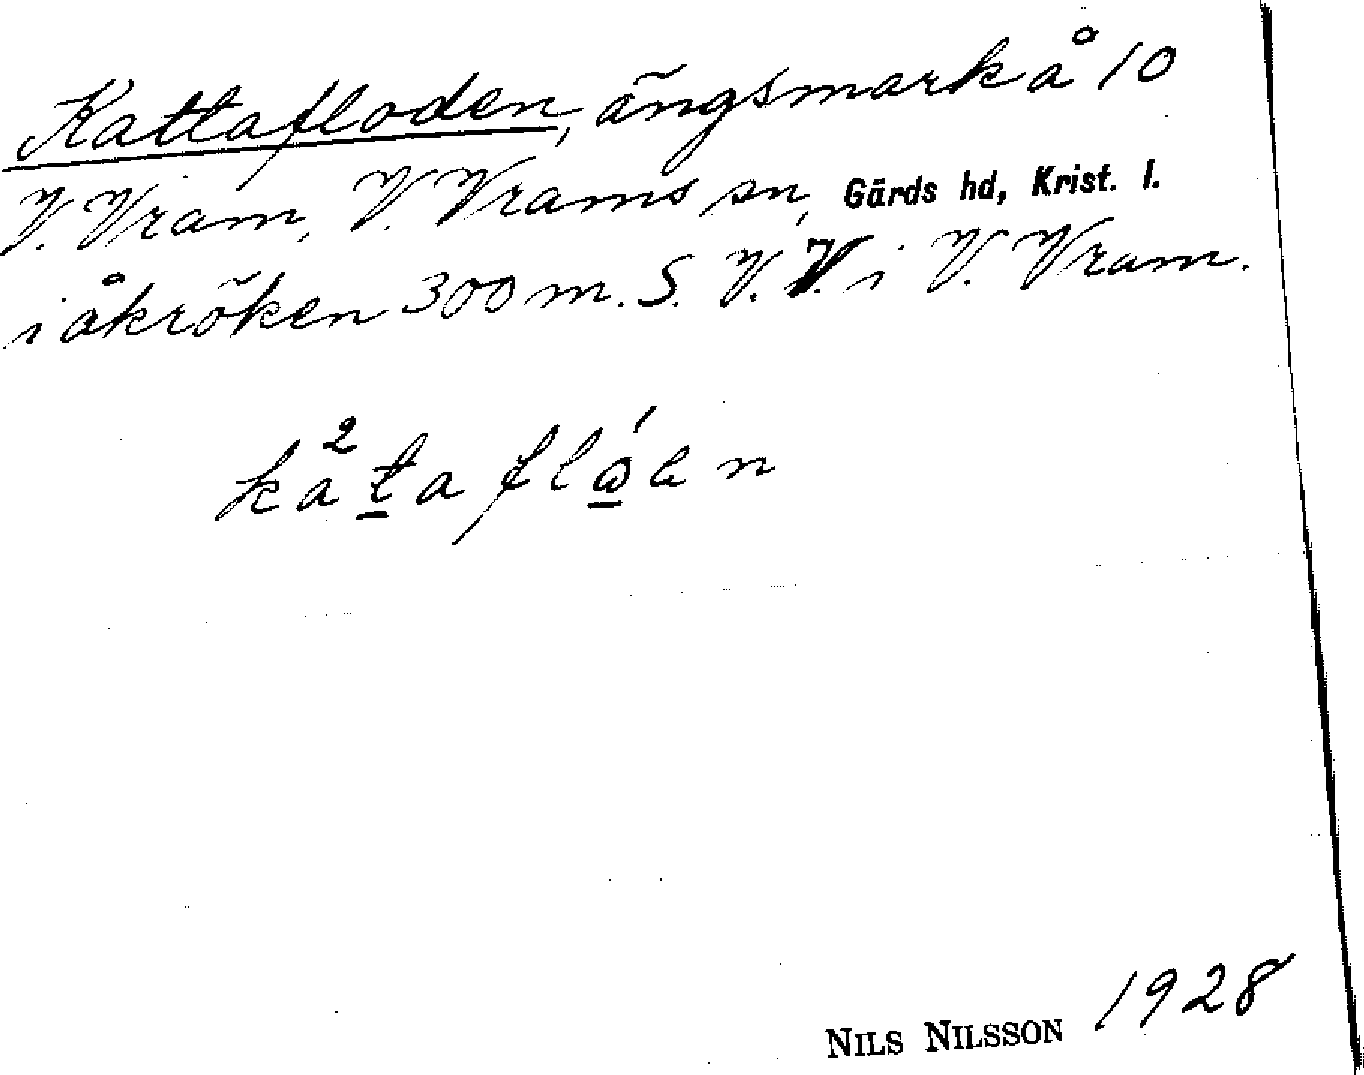 Kattafloden, ängsmark å 10
V. Vram, V. Vrams sn, Gärds hd, Krist. l.
i åkröken 300 m. S. V. V. i V. Vram.
NILS NILSSON 1928